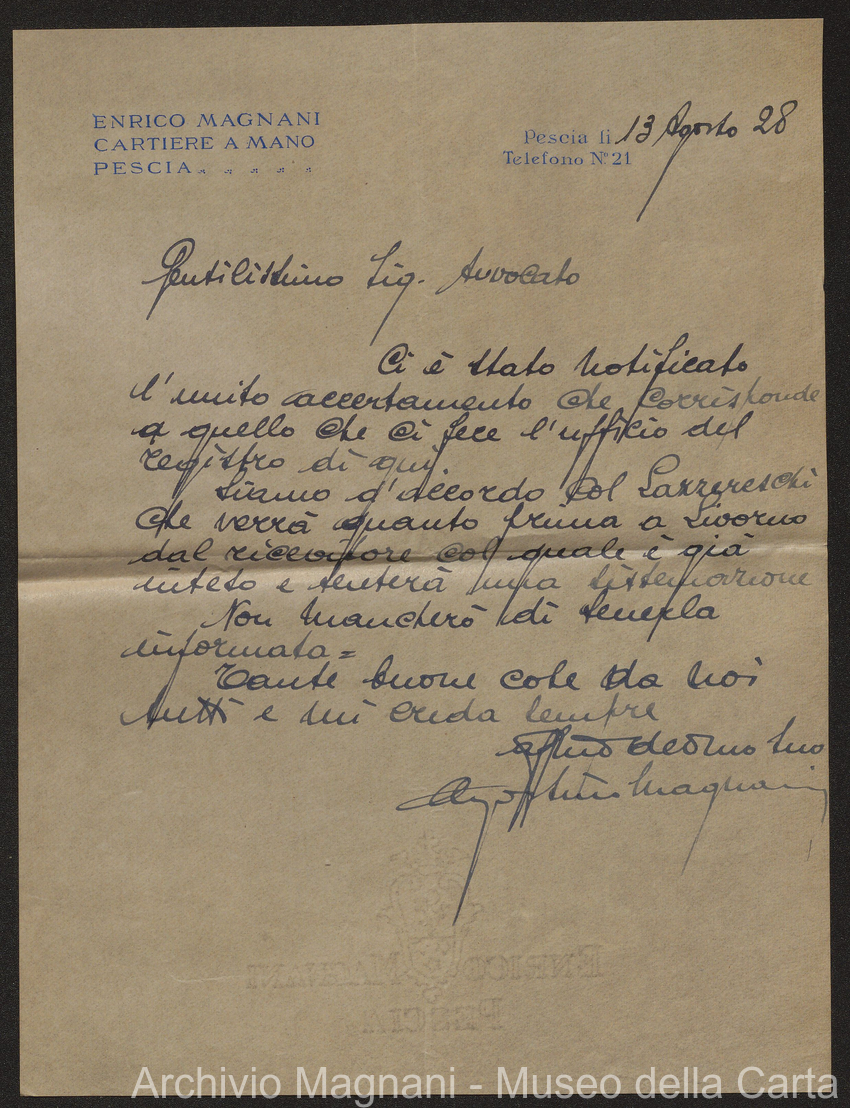 ENRICO MAGNANI
CARTIERE A MANO
PESCIA
Pescia li 13 Agosto 28
Telefono No. 21
Gentilissimo Sig. Avvocato
Ci è stato notificato
l'unito accertamento che corrisponde
a quello che ci fece l'ufficio del
registro di qui
Siamo d'accordo col Lazzereschi
che verrà quanto prima a Livorno
dal ricevitore col quale è già
inteso e tenterà una sistemazione
Non mancherò di tenerla
informata =
Tante buone cose da noi
tutti e mi creda sempre
affmo devmo suo
Agostino Magnani
ENRICO MAGNANI
PESCIA
Archivio Magnani - Museo della Carta